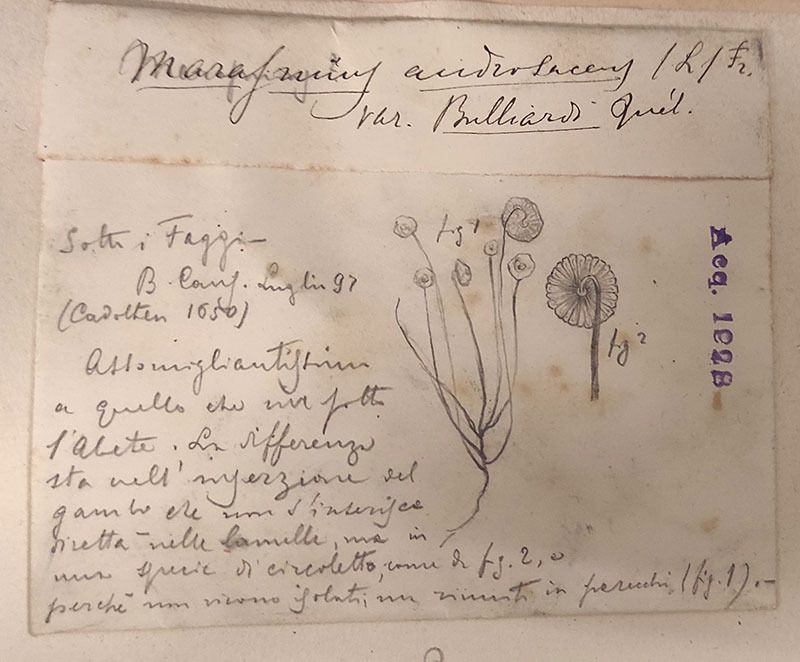 Marasmius androsaceus (L) Fr.
var. Bulliardi Quél.
Sotto i Faggi –
B. Cans. Luglio 97
(Cadolten 1650)
Assomigliantissimo
a quello che vive sotto
l'Abete. La differenza
sta nell'inserzione del
gambo che non s'inserisce
diretta nelle lamelle, ma in
una specie di circoletto, come da fig. 2, e
perchè non vivono isolati, ma riuniti in parecchi (fig. 1). –
fig 1
fig 2
Acq. 1928